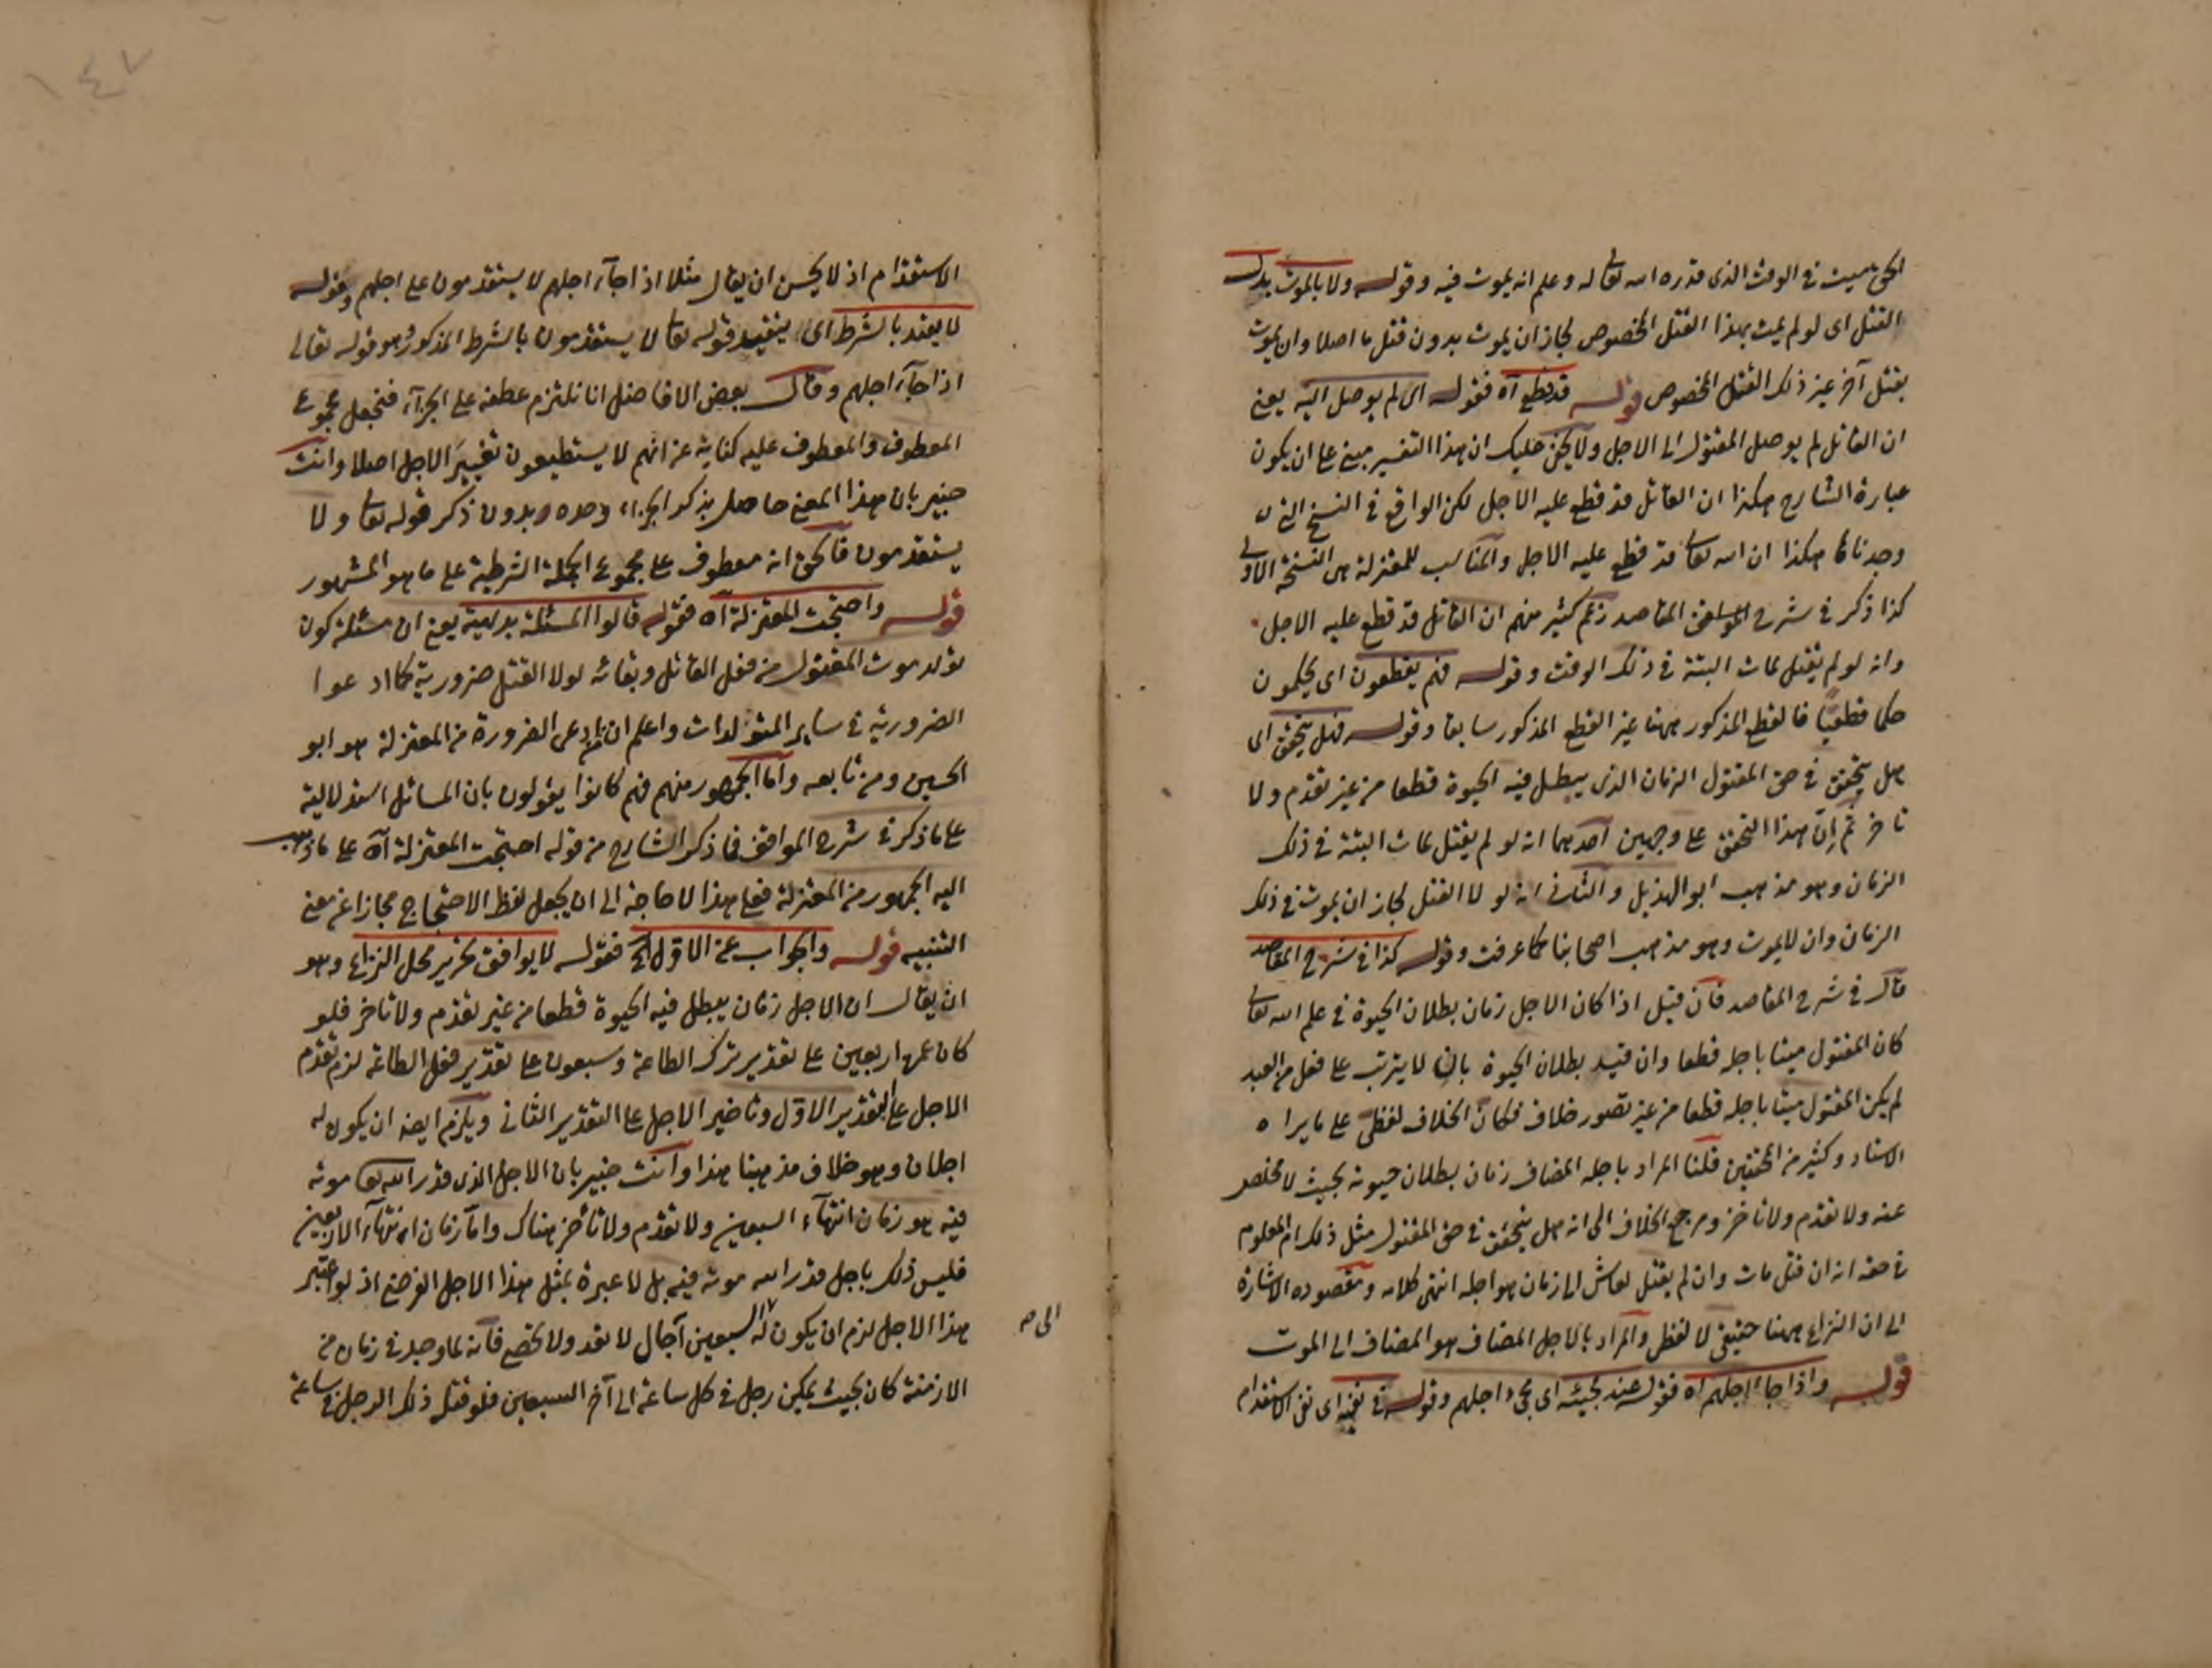 الحق ميت في الوقت الذي قدره الله تعالى له وعلم انه يموت فيه وقوله ولا بالموت بدل
القتل اى لو لم يمت بهذا القتل المخصوص لجاز ان يموت بدون قتل ما اصلا وان يموت
بقتل آخر غير ذلك القتل المخصوص قوله قد قطع آه فقوله اى لم يوصل اليه يعنى
ان القاتل لم يوصل المقتول الى الاجل ولا يخفى عليك ان هذا التفسير مبنى على ان يكون
عبارة الشارح هكذا ان القاتل قد قطع عليه الاجل لكن الواقع في النسخ التى
وجدناها هكذا ان الله تعالى قد قطع عليه الاجل والمناسب للمعتزلة هى النسخة الاولى
كذا ذكر في شرح المقاصد زعم كثير منهم ان القاتل قد قطع عليه الاجل
وانه لو لم يقتل لمات البتة في ذلك الوقت وقوله فهم يقطعون اى يحكمون
حكما قطعيا فالقطع المذكور ههنا غير القطع المذكور سابقا وقوله فهل يتحقق اى
هل يتحقق في حق المقتول الزمان الذى يبطل فيه الحيوة قطعا من غير تقدم ولا
تاخر ثم ان هذا التحقق على وجهين احدهما انه لو لم يقتل لمات البتة في ذلك
الزمان وهو مذهب ابو الهذيل والثانى انه لو لا القتل لجاز ان يموت في ذلك
الزمان وان لا يموت وهو مذهب اصحابنا كما عرفت وقوله كذا في شرح المقاصد
قال في شرح المقاصد فان قيل اذا كان الاجل زمان بطلان الحيوة في علم الله تعالى
كان المقتول ميتا باجله قطعا وان قيد بطلان الحيوة بان لا يترتب على فعل من العبد
لم يكن المقتول ميتا باجله قطعا من غير تصور خلاف فكان الخلاف لفظى على ما يراه
الاستاد وكثير من المحققين قلنا المراد باجله المضاف زمان بطلان حيوته بحيث لا مخلص
عنه ولا تقدم ولا تاخر ومرجع الخلاف الى انه هل يتحقق في حق المقتول مثل ذلك ام المعلوم
في حقه انه ان قتل مات وان لم يقتل لعاش الى زمان هو اجله انتهى كلامه ومقصوده الاشارة
الى ان النزاع ههنا حقيقى لا لفظى والمراد بالاجل المضاف هو المضاف الى الموت
قوله واذا جاء اجلهم آه فقوله عند مجيئه اى مجئ اجلهم وقوله في نفيه اى نفى الاستقدام
١٤٧
الاستقدام اذ لا يحسن ان يقال مثلا اذا جاء اجلهم لا يستقدمون على اجلهم وقوله
لا يقيد بالشرط اى يتقيد قوله تعالى لا يستقدمون بالشرط المذكور وهو قوله تعالى
اذا جاء اجلهم وقال بعض الافاضل انا نلتزم عطفه على الجزاء فنجعل مجموع
المعطوف والمعطوف عليه كناية عن انهم لا يستطيعون تغيير الاجل اصلا وانت
خبير بان هذا المعنى حاصل بذكر الجزاء وحده وبدون ذكر قوله تعالى ولا
يستقدمون فالحق انه معطوف على مجموع الجملة الشرطية على ما هو المشهور
قوله واحتجت المعتزلة آه فقوله قالوا المسئلة بديهية يعنى ان مسئلة كون
تولد موت المقتول من فعل القاتل وبقائه لولا القتل ضرورية كما ادعوا
الضرورية في ساير المتولدات واعلم ان مدعى الضرورة من المعتزلة هو ابو
الحسين ومن تابعه واما الجمهور منهم فهم كانوا يقولون بان المسائل استدلالية
على ما ذكر في شرح المواقف فما ذكر الشارح من قوله احتجت المعتزلة آه على ما ذهب
اليه الجمهور من المعتزلة فعلى هذا لا حاجة الى ان يجعل لفظ الاحتجاج مجازا عن معنى
التنبيه قوله والجواب عن الاول الخ فقوله لا يوافق تحرير محل النزاع وهو
ان يقال ان الاجل زمان يبطل فيه الحيوة قطعا من غير تقدم ولا تاخر فلو
كان عمره اربعين على تقدير ترك الطاعة وسبعون على تقدير فعل الطاعة لزم تقدم
الاجل على التقدير الاول وتاخير الاجل على التقدير الثانى ويلزم ايضا ان يكون له
اجلان وهو خلاف مذهبنا هذا وانت خبير بان الاجل الذى قدر الله تعالى موته
فيه هو زمان انتهاء السبعين ولا تقدم ولا تأخر هناك واما زمان انتهاء الاربعين
فليس ذلك باجل قدر الله موته فيه بل لا عبرة بمثل هذا الاجل الفرضى اذ لو اعتبر
هذا الاجل لزم ان يكون له السبعين آجال لا تعد ولا تحصى فانه لما وجد في زمان من
الى صح
الازمنة كان بحيث يمكن رجل في كل ساعة الى آخر السبعين فلو قتله ذلك الرجل في ساعة